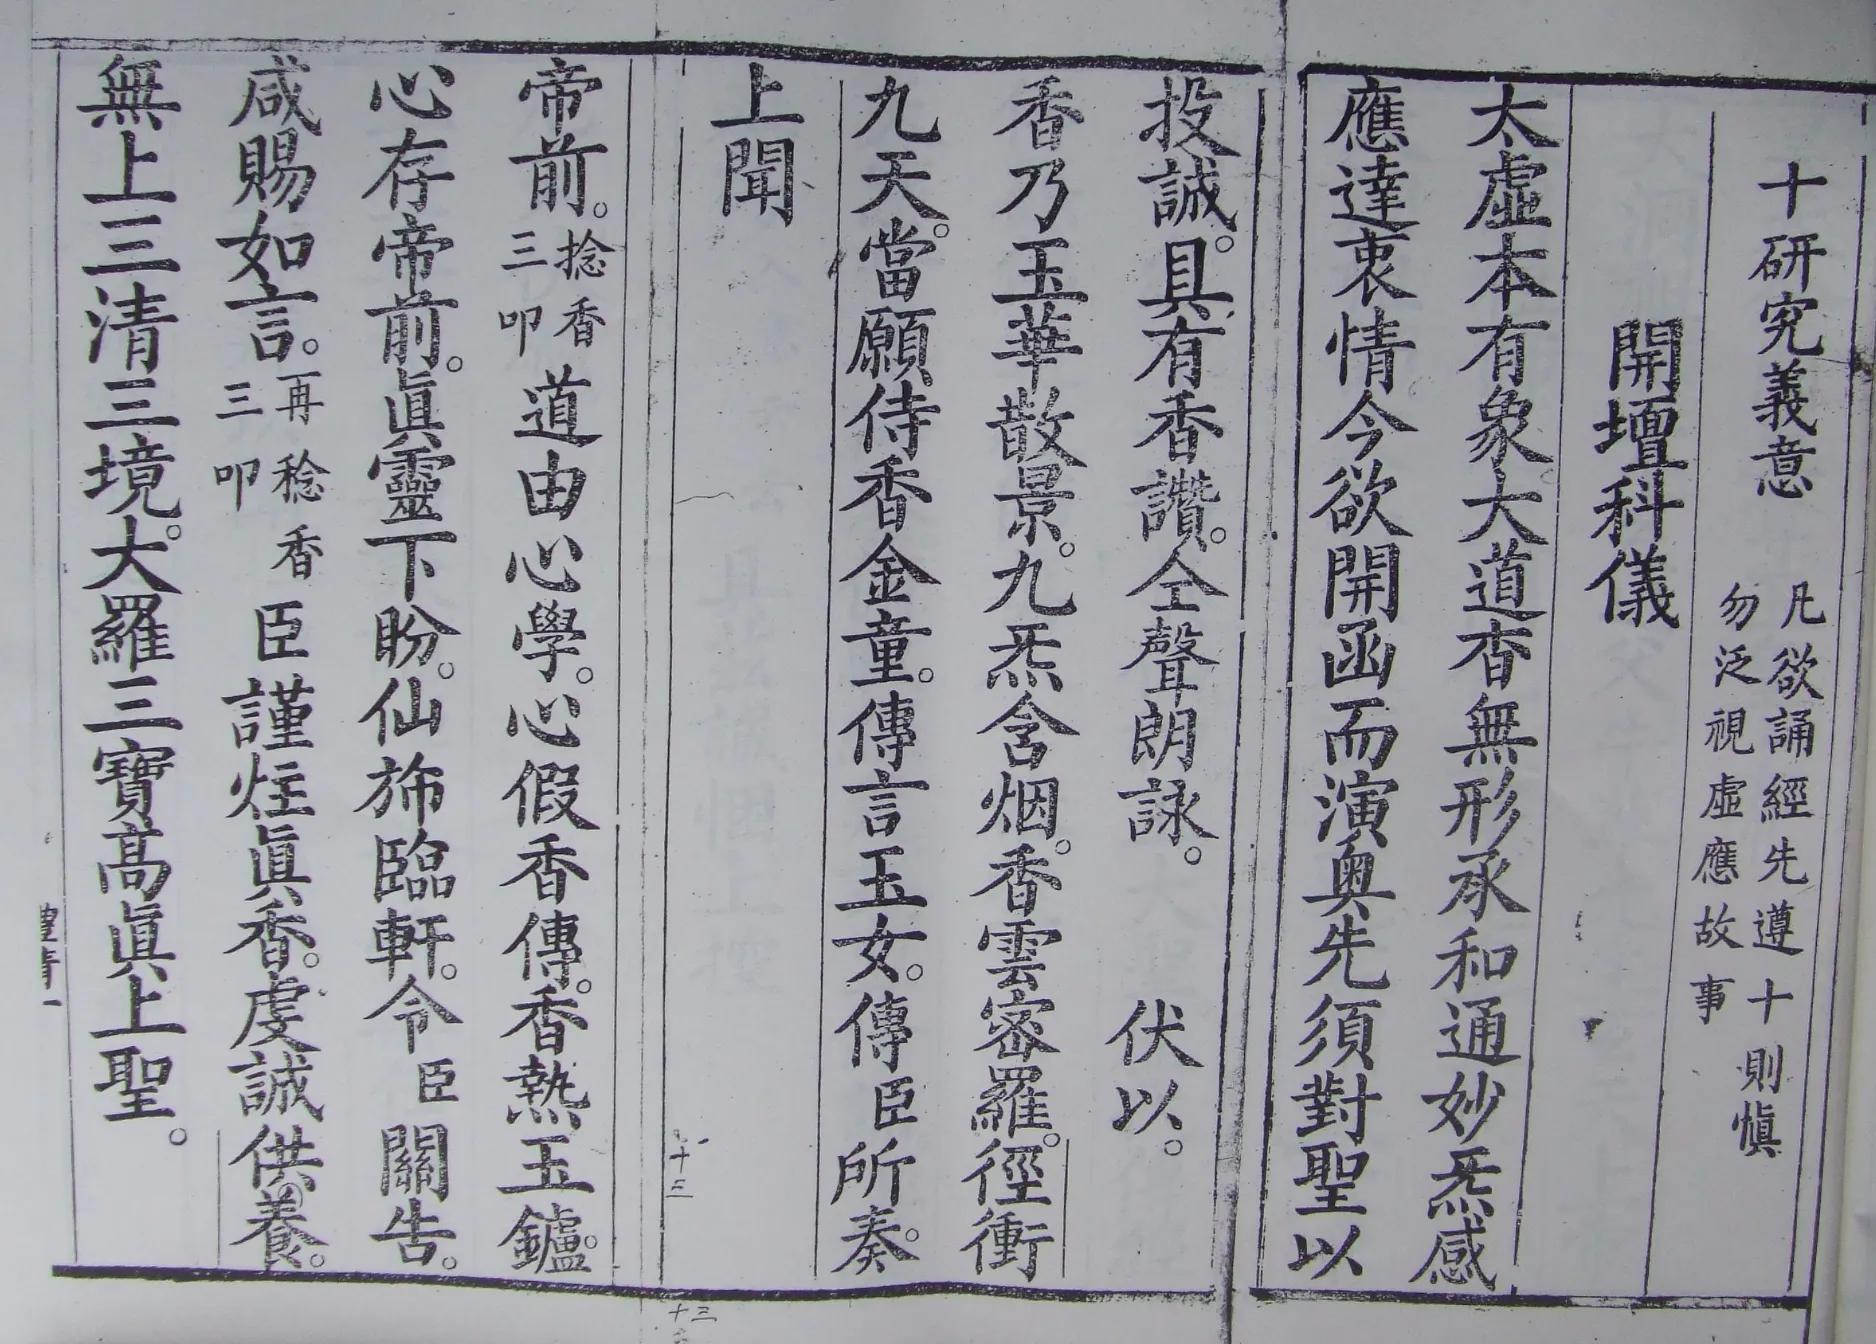 十研究義意 凡欲誦經先遵十則慎
勿泛視虛應故事
開壇科儀
太虛本有象。大道杳無形承和通妙炁感
應達衷情今欲開函而演奥先須對聖以
投誠。具有香讚。仝聲朗詠。 伏以。
香乃玉華散景。九炁含烟。香雲密羅。徑衝
九天。當願侍香金童。傳言玉女。傳臣所奏。
上聞
十三
十三
帝前。捻香三叩 道由心學。心假香傳。香熱玉鑪。
心存帝前。眞靈下盼。仙斾臨軒。令臣關告。
咸賜如言。再稔香三叩 臣謹炷眞香。虔誠供養。
無上三清三境。大羅三寶高眞上聖。